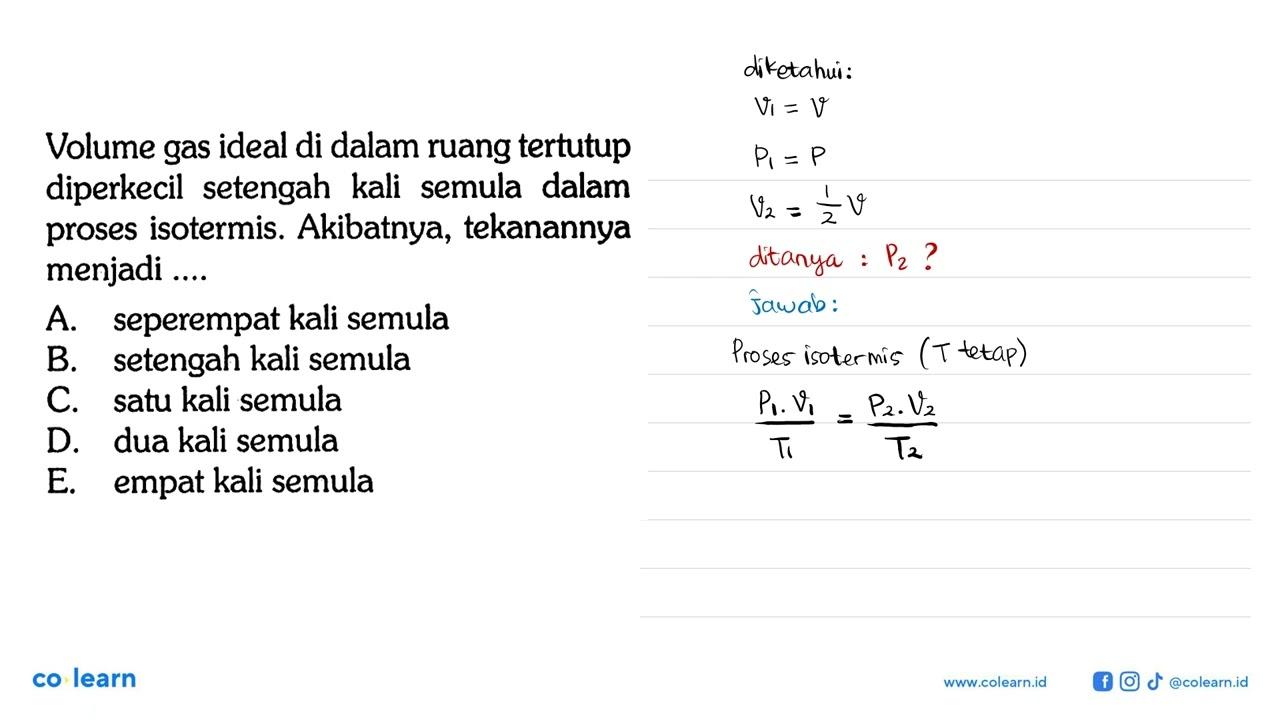 Volume gas ideal di dalam ruang tertutup
diperkecil setengah kali semula dalam
proses isotermis. Akibatnya, tekanannya
menjadi ....
A. seperempat kali semula
B. setengah kali semula
C. satu kali semula
D. dua kali semula
E. empat kali semula
diketahui:
V₁ = V
P₁ = P
V₂ = 1/2 V
ditanya : P₂ ?
Jawab:
Proses isotermis (T tetap)
P₁ . V₁ / T₁ = P₂ . V₂ / T₂
co learn
www.colearn.id
@colearn.id